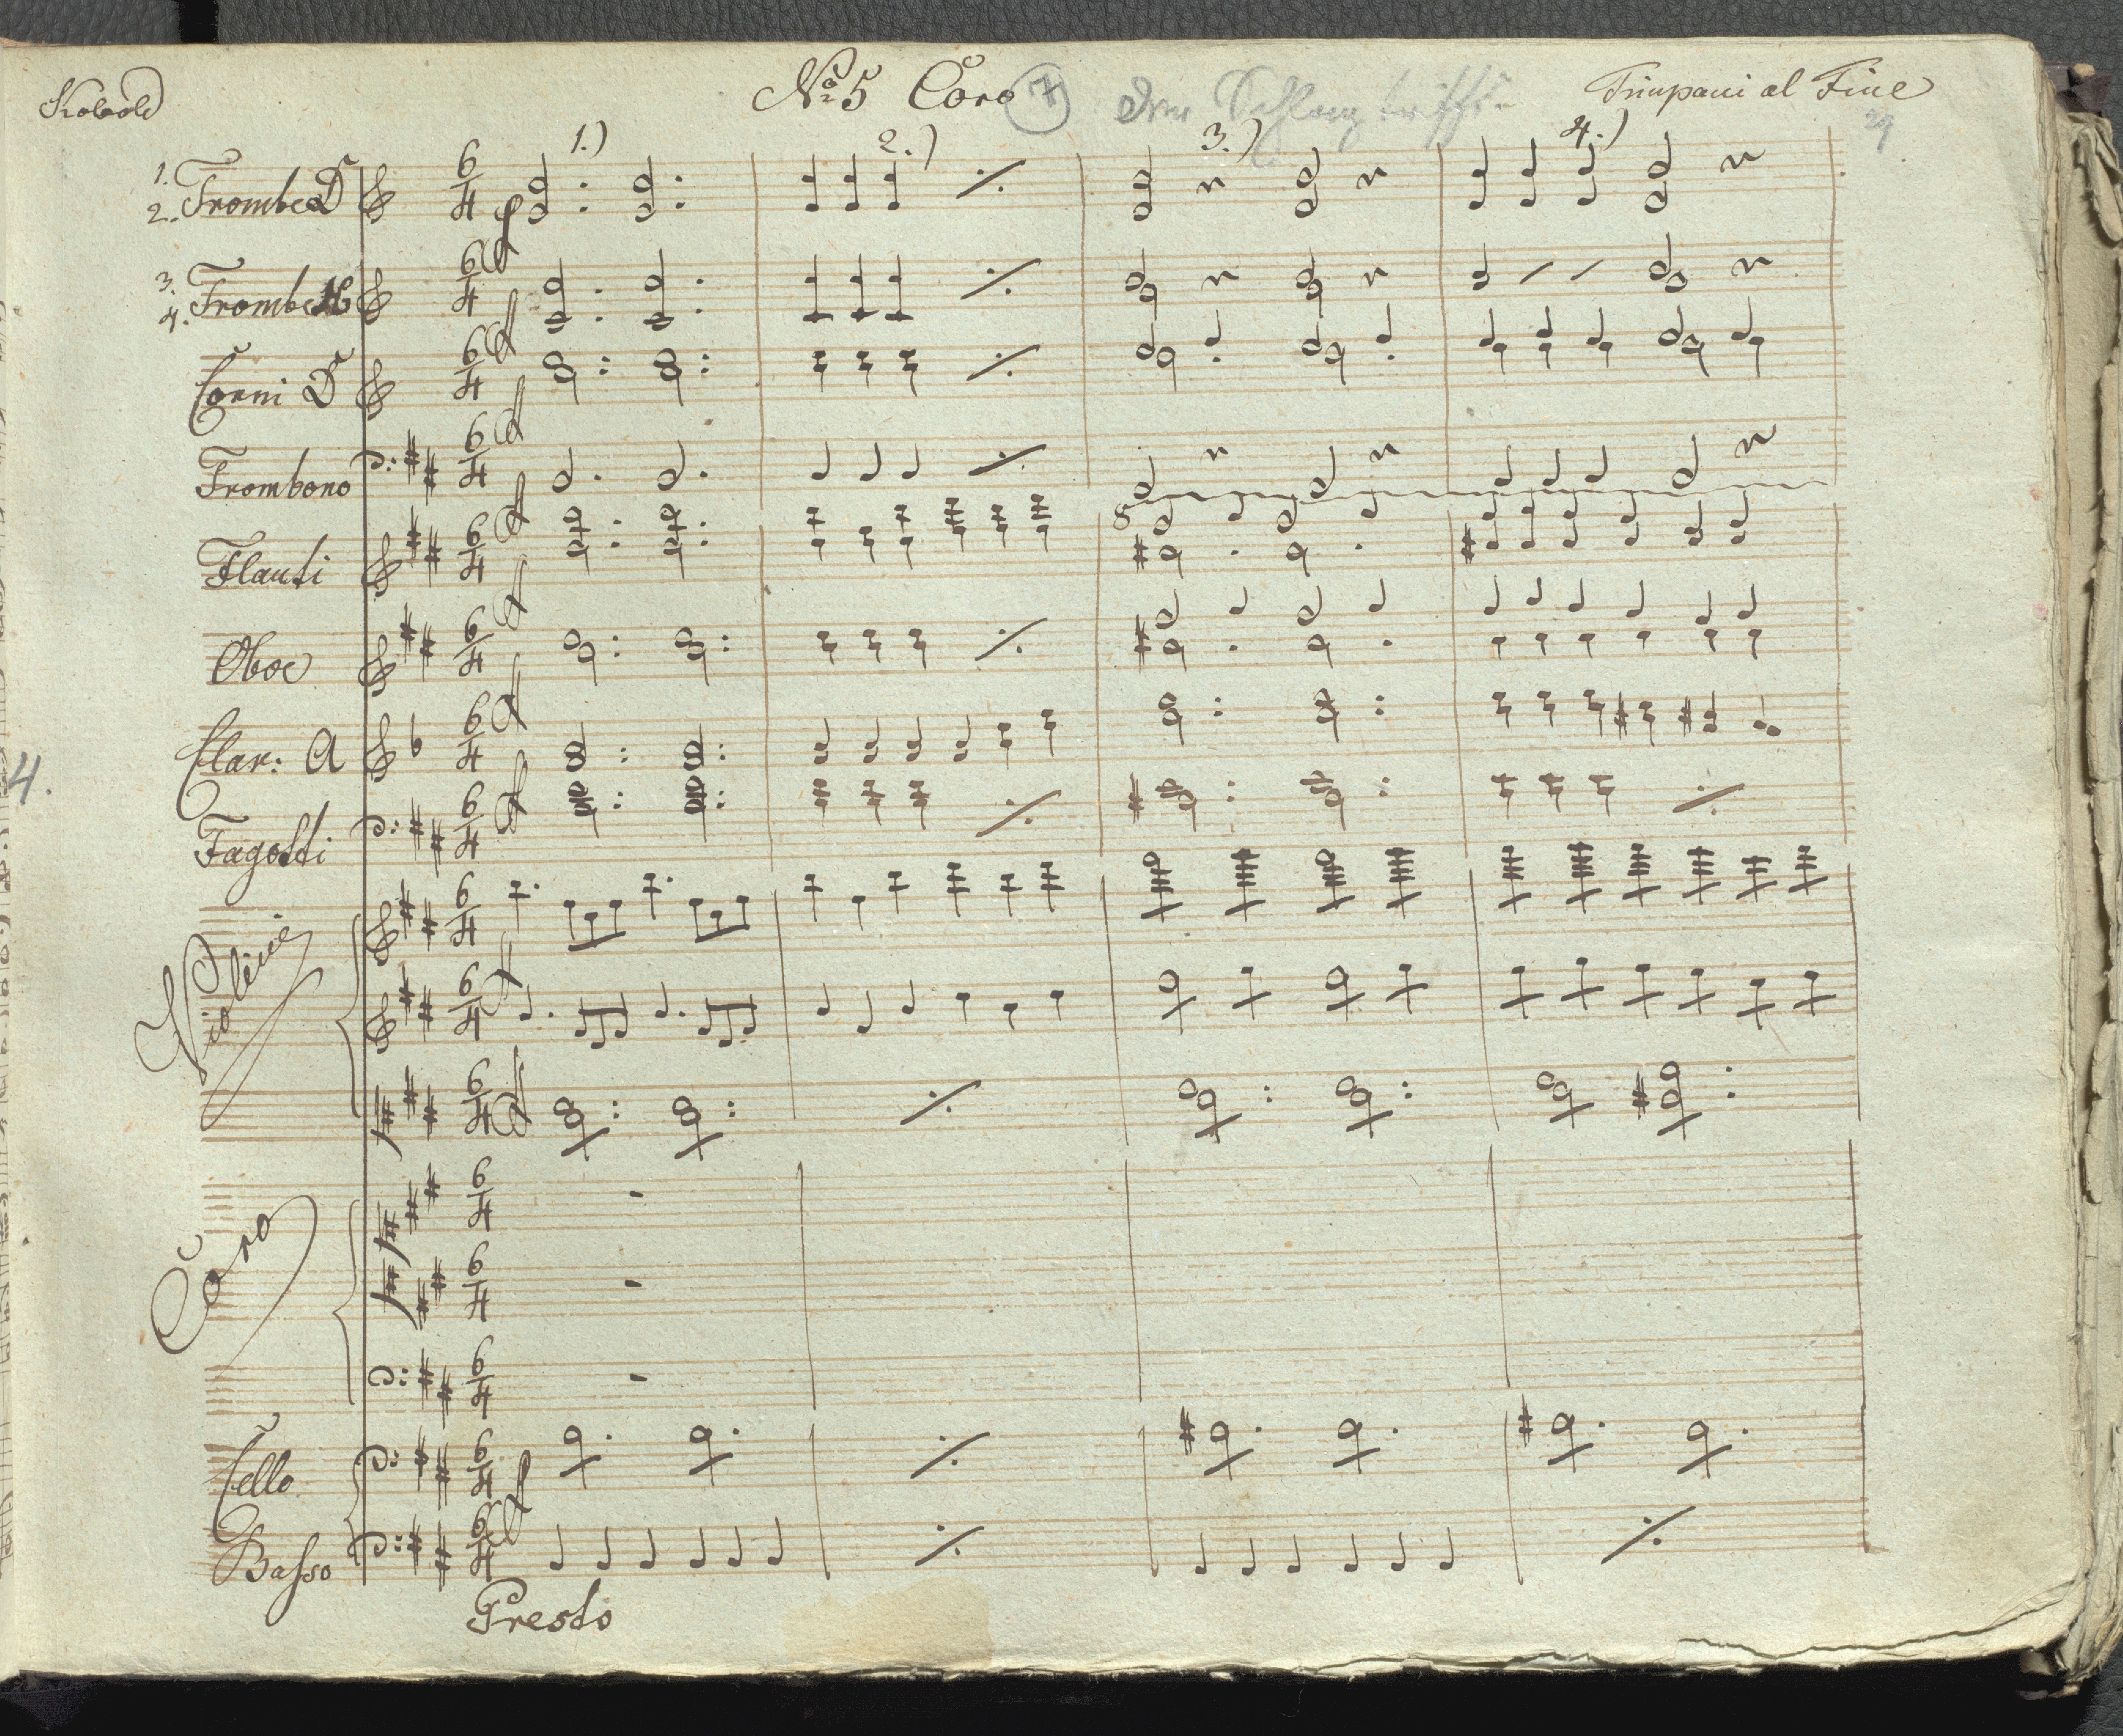 Kobold
Nº 5 Coro 7
Timpani al Fine
29
1.) 2.) 3.) 4.)
1.
2. Trombe D
3.
4. Trombe
Corni D
Trombono
Flauti
Oboe
Clar: A
4.
Fagotti
Violini
Coro
Cello
Basso
Presto